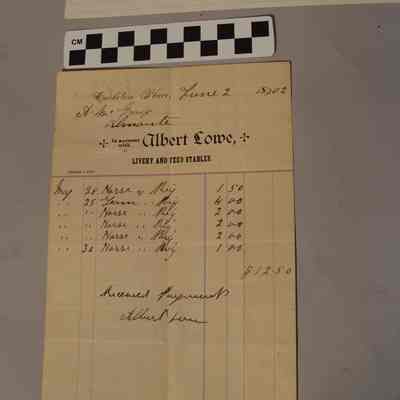 CM
Carleton Place, June 2 1902
A. Mc
Almonte
In account with Albert Lowe,
LIVERY AND FEED STABLES
May 28 Horse & Rig 1 50
" 25 Team " Rig 4 00
" " Horse " Rig 2 00
" " Horse " Rig 2 00
" " Horse " Rig 2 00
" 30 Horse " Rig 1 00
$12.50
Received Payment
Albert Lowe